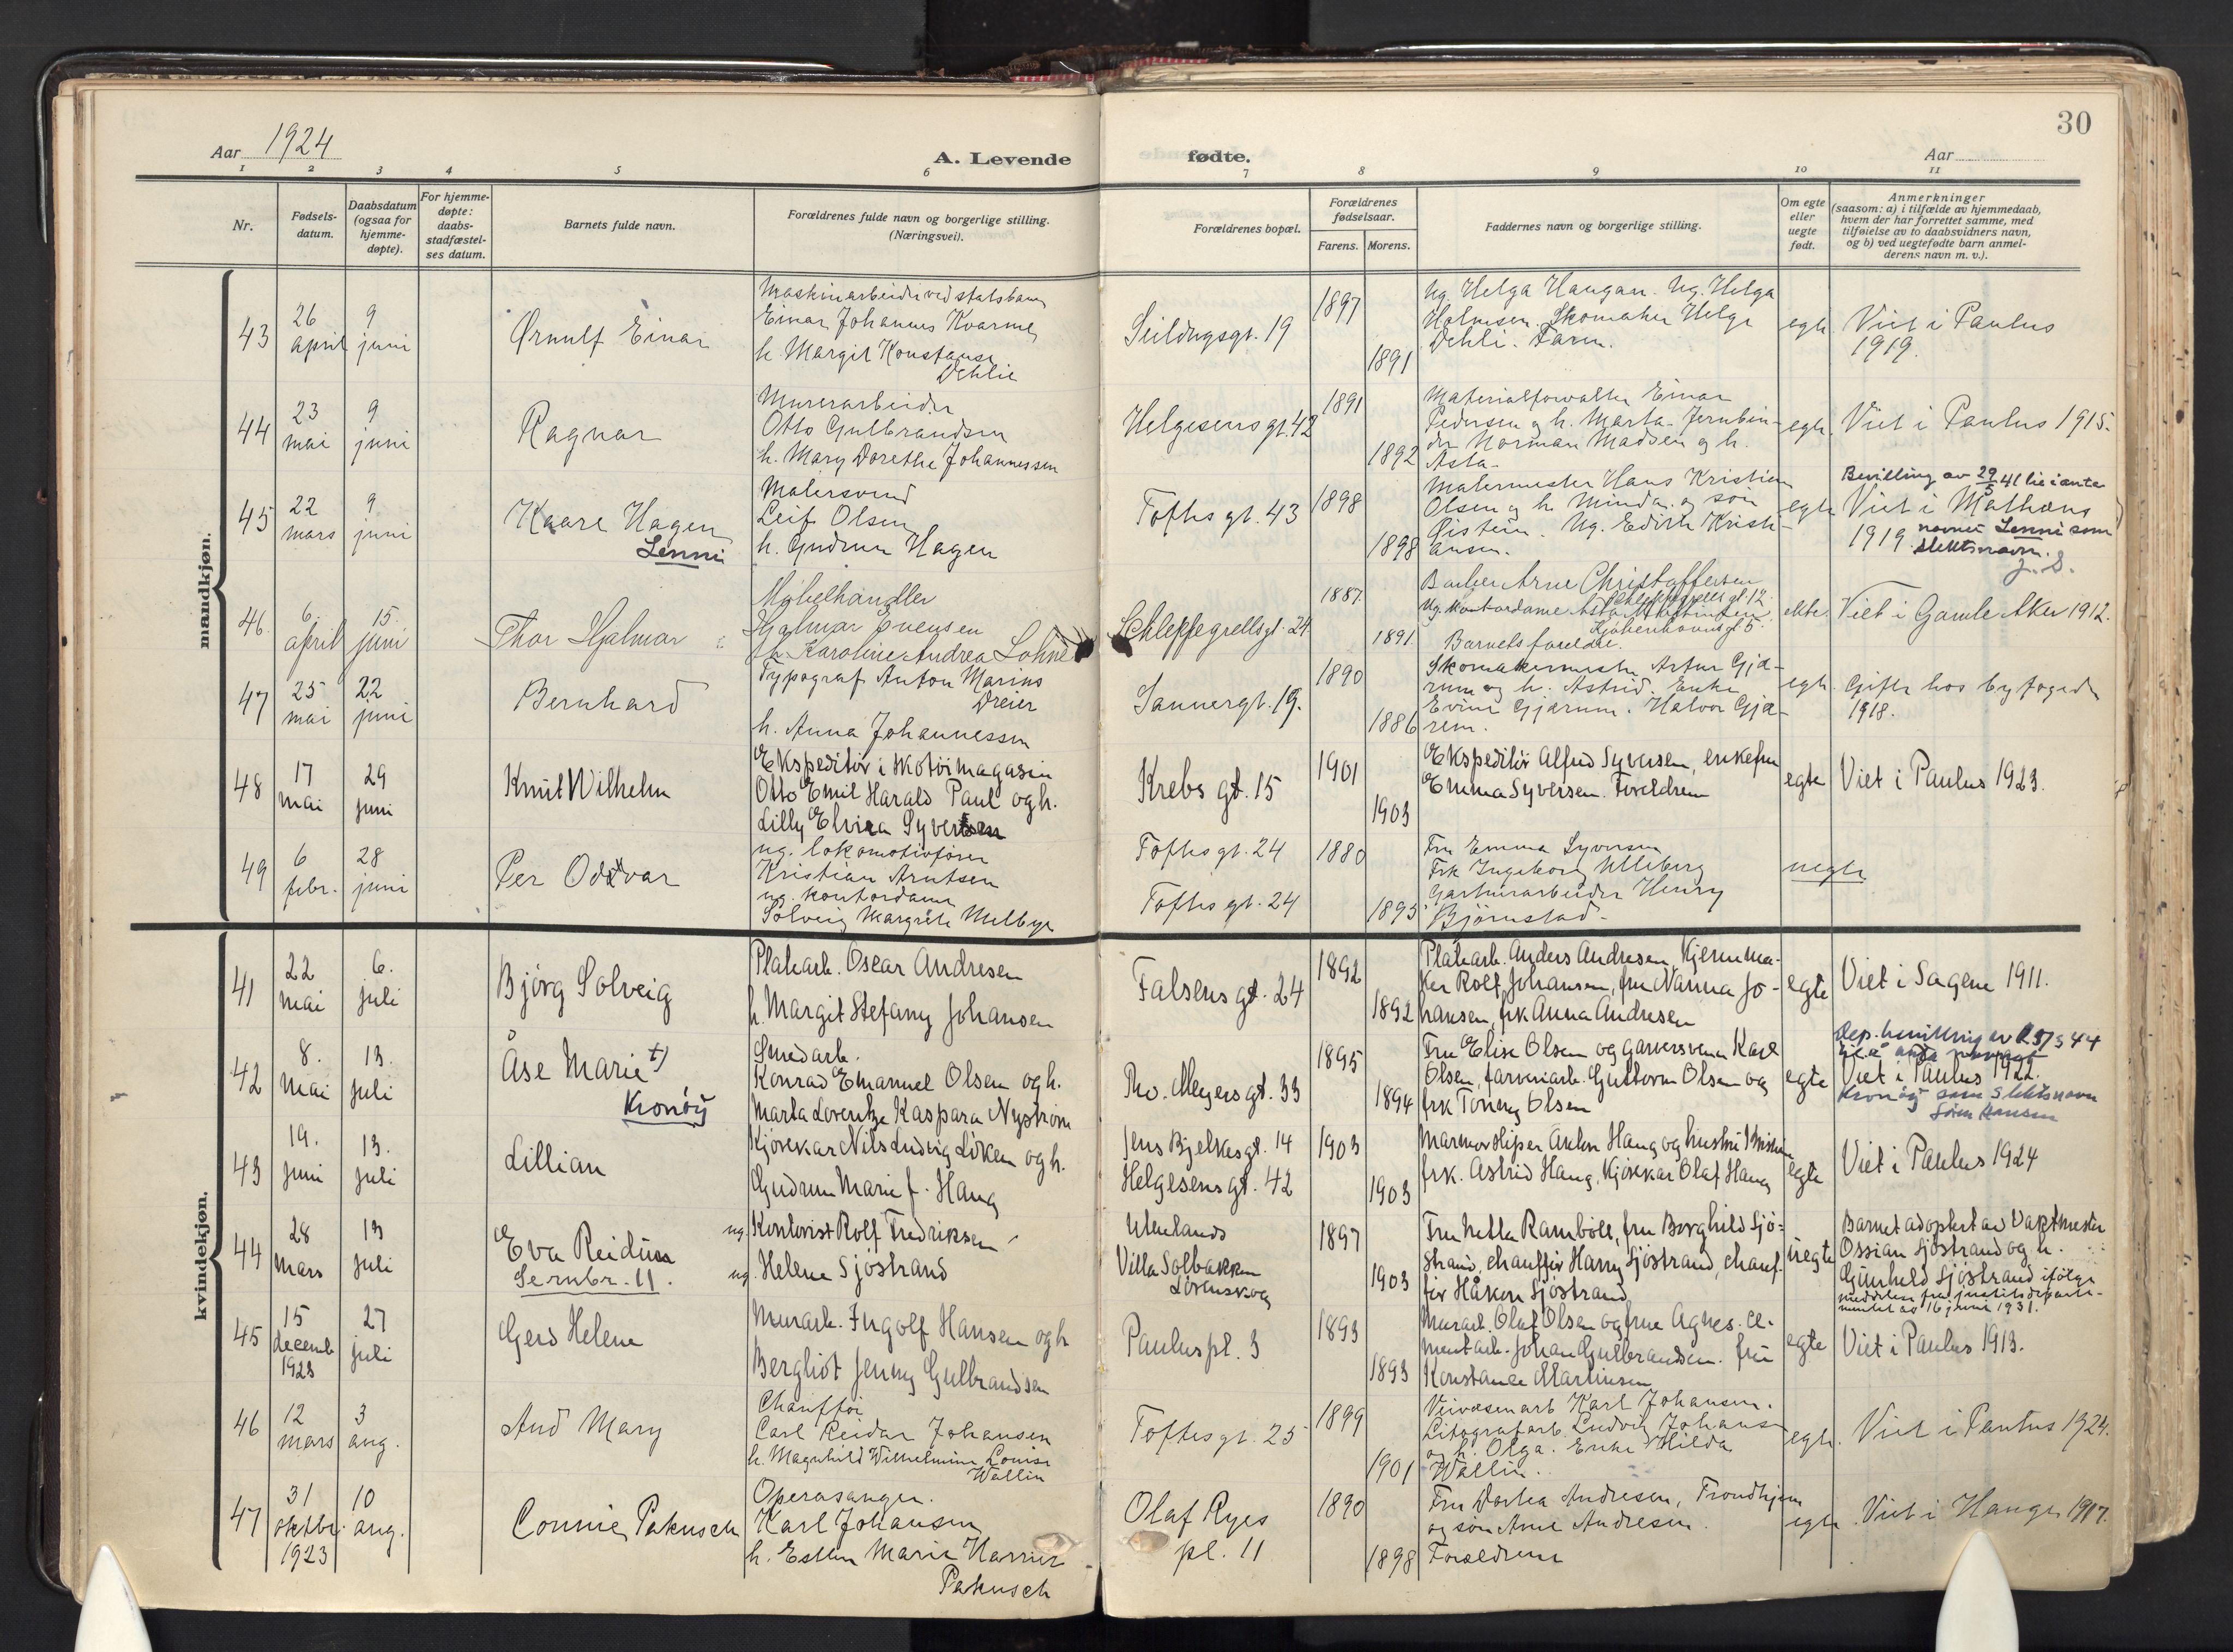 Aar 1924
A. Levende fødte.
Aar
30
1 2 3 4 5 6 7 8 9 10 11
Nr.
Fødsels-
datum.
Daabsdatum
(ogsaa for
hjemme-
døpte).
For hjemme-
døpte:
daabs-
stadfæstel-
ses datum.
Barnets fulde navn.
Forældrenes fulde navn og borgerlige stilling.
(Næringsvei).
Forældrenes bopæl.
Forældrenes
fødselsaar.
Farens. Morens.
Faddernes navn og borgerlige stilling.
Om egte
eller
uegte
født.
Anmerkninger
(saasom: a) i tilfælde av hjemmedaab,
hvem der har forrettet samme, med
tilføielse av to daabsvidners navn,
og b) ved uegtefødte barn anmel-
derens navn m. v.).
mandkjøn.
43
26
april
9
juni
Ørnulf Einar
Maskinarbeider ved statsbanen
Einar Johannes Kvarme
h. Margit Konstanse
Dehlie
Seildugsgt. 19
1897
1891
Ug. Helga Haugan. Ug. Helga
Holmsen. Skomaker Helge
Dehli. Faren.
egte
Viet i Paulus
1919.
44
23
mai
9
juni
Ragnar
Murerarbeider
Otto Gulbrandsen
h. Mary Dorethe Johannessen
Helgesens gt. 42
1891
1892
Materialforvalter Einar
Pedersen og h. Marta. Jernbin-
der Norman Madsen og h.
Asta.
egte.
Viet i Paulus 1915.
45
22
mars
9
juni
Kaare Hagen
Lenni
Malersvend
Leif Olsen
h. Gudrun Hagen
Toftes gt. 43
1898
1898
Malermester Hans Kristian
Olsen og h. Minda og søn
Øistein. Ug. Edith Kristi-
ansen.
egte
Bevilling av 29/5 41 til i anta
Viet i Mathæus
1919 navnet Lenni som
slektsnavn.
J. S.
46.
6.
april
15.
juni
Thor Hjalmar
Møbelhandler
Hjalmar Evensen
h. Karoline Andrea Lohne
Schleppegrellsgt. 24
1887.
1891.
Barber Arne Christoffersen
Schleppegrells gt. 12.
Ug. kontordame Asta
Kjøbenhavnsgt 5.
Barnets foreldre.
ekte.
Viet i Gamle Aker 1912.
47
25
mai
22
juni
Bernhard
Typograf Anton Marius
Dreier
h. Anna Johannessen
Sannergt. 19.
1890
1886
Skomakermester Artur Gjæ-
rum og h. Astrid. Enke
Evine Gjærum. Halvor Gjæ-
rem.
egte.
Gifte hos byfogden
1918.
48
17
mai
29
juni
Knut Wilhelm
Ekspeditør i skotøimagasin
Otto Emil Harald Paul og h.
Lilly Elvira Syversen
Krebs gt. 15
1901
1903
Ekspeditør Alfred Syversen, enkefru
Emma Syversen. Foreldrene
egte
Viet i Paulus 1923.
49
6
febr.
28
juni
Per Oddvar
ug. lokomotivfører
Kristian Arntsen
ug. kontordame
Solveig Margrete Melbye
Toftes gt. 24
Toftes gt. 24
1880
1895
Fru Emma Syversen
Frk Ingeborg Ulleberg
Gartnerarbeider Henry
Bjørnstad.
uegte
kvindekjøn.
41
22
mai
6.
juli
Bjørg Solveig
Platearb. Oscar Andresen
h. Margit Stefany Johansen
Falsens gt. 24
1892
1892
Platearb. Anders Andresen, Kjernema-
ker Rolf Johansen, fru Nanna Jo-
hansen, frk Anna Andresen
egte
Viet i Sagene 1911.
42
8.
mai
13.
juli
Åse Marie +)
Kronöy
Smedarb.
Konrad Emanuel Olsen og h.
Marta Lorentze Kaspara Nystrøm
Tho. Meyers gt. 33
1895
1894
Fru Elise Olsen og garversvenn Karl
Olsen, farveriarb. Guttorm Olsen og
frk Tonny Olsen
egte
Viet i Paulus 1922.
Kronöy som slektsnavn
43
19.
juni
13.
juli
Lillian
Kjørekar Nils Ludvig Løken og h.
Gudrun Marie f. Haug
Jens Bjelkesgt. 14
Helgesens gt. 42
1903
1903
Marmorsliper Anton Haug og hustru
frk. Astrid Haug, Kjørekar Olaf Haug
egte
Viet i Paulus 1924
44
28
mars
13
juli
Eva Reidun
Se nr. 11.
ug. Kontorist Rolf Fredriksen
ug. Helene Sjøstrand
Utenlands
Villa Solbakken
Lørenskog
1897
1903
Fru Netta Rambøll, fru Borghild Sjø-
strand, chauffør Harry Sjøstrand, chauf-
før Håkon Sjøstrand
uegte
Barnet adoptert av Vaktmester
Ossian Sjøstrand og h.
Gunhild Sjøstrand ifølge
meddelelse fra justitsdeparte-
mentet av 16 juni 1931.
45
15
decemb
1923
27
juli
Gerd Helene
Murarb. Ingolf Hansen og h
Bergliot Jenny Gulbrandsen
Pauluspl. 3
1893
1893
Murarb. Olaf Olsen og frue Agnes. Ce-
mentarb. Johan Gulbrandsen. fru
Konstance Martinsen
egte
Viet i Paulus 1913.
46
12
mars
3
aug.
Aud Mary
Chauffør
Carl Reidar Johansen
h. Magnhild Wilhelmine Louise
Wallin
Toftes gt. 25
1899
1901
Veivæsenarb Karl Johansen.
Litografarb. Ludvig Johansen
og h. Olga. Enke Hilda
Wallin.
egte.
Viet i Paulus 1924.
47
31
oktbr.
1923
10
aug.
Connie Pakusch
Operasanger.
Karl Johansen
h. Esther Marie Harriet
Pakusch
Olaf Ryes
pl. 11
1890
1898
Fru Dorthea Andresen, Trondhjem
og søn Arne Andresen.
Forældrene
egte
Viet i Hauge 1917.